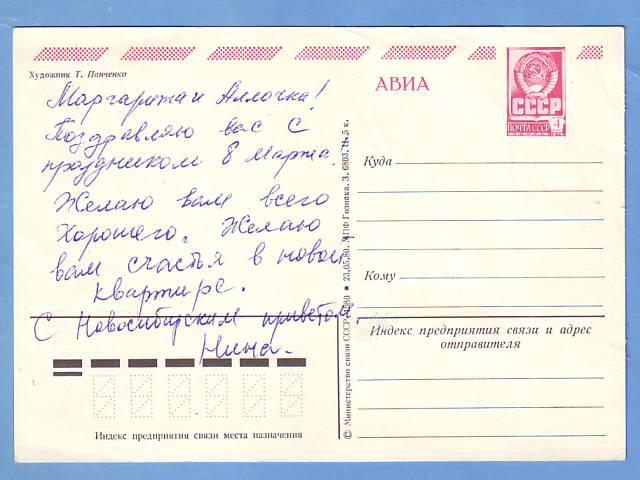 Художник Т. Панченко
Маргарита и Аллочка!
Поздравляю вас с
праздником 8 Марта.
Желаю вам всего
хорошего. Желаю
вам счастья в новой
квартире.
С Новосибирским приветом,
Нина.
Индекс предприятия связи места назначения
АВИА
СССР
ПОЧТА СССР
4
Куда
Кому
Индекс предприятия связи и адрес
отправителя
© Министерство связи СССР. 1980 • 23.05.80. МПФ Гознака. З. 6803. Ц. 5 к.